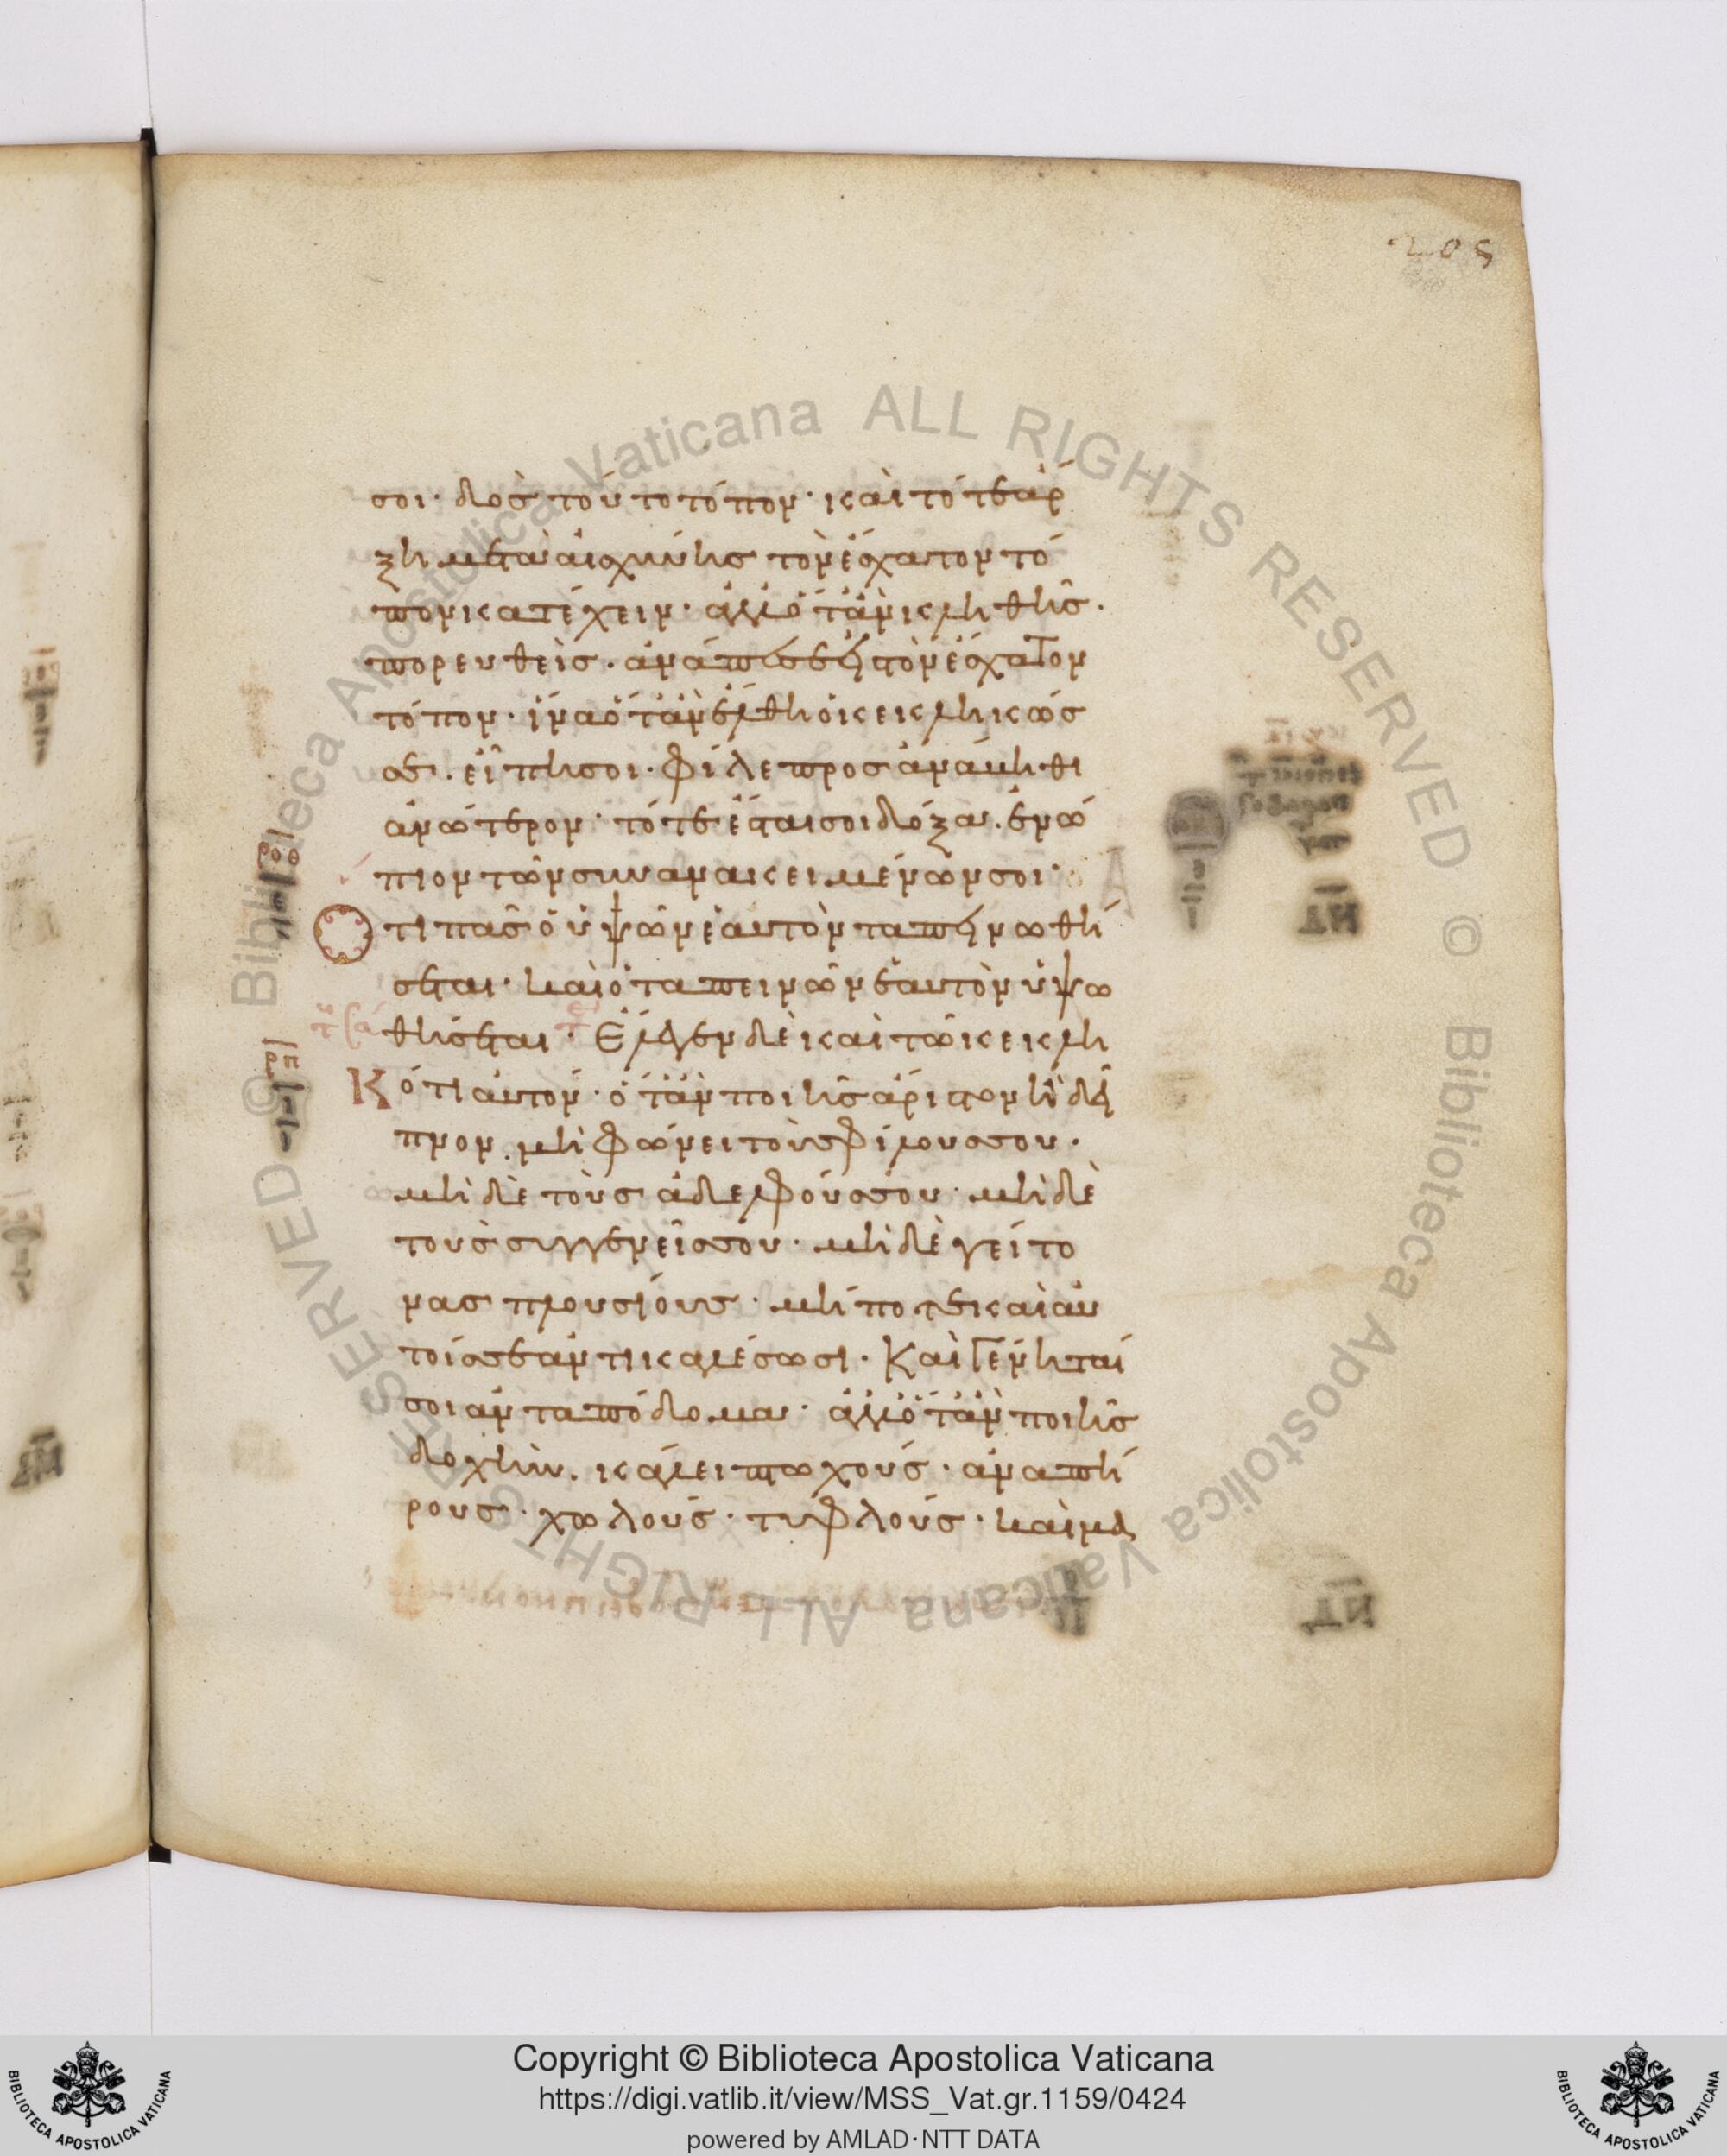 205
σοι· δὸς τούτω τόπον· καὶ τότε ἄρ
ξη μετὰ αἰσχύνης τὸν ἔσχατον τό
πον κατέχειν· ἀλλ' ὅταν κληθῆς·
πορευθεὶς· ἀνάπεσαι εἰς τὸν ἔσχατον
τόπον· ἵνα ὅταν ἔλθη ὁ κεκληκώς
σε· εἴπη σοι· φίλε προσανάβηθι
ἀνώτερον· τότε ἔσται σοι δόξα· ἐνώ
πιον τῶν συνανακειμένων σοι·
Ὅτι πᾶς ὁ ὑψῶν ἑαυτὸν ταπεινωθή
σεται· καὶ ὁ ταπεινῶν ἑαυτὸν ὑψω
θήσεται· Ἔλεγεν δὲ καὶ τῶ κεκλη
Κότι αὐτόν· ὅταν ποιῆς ἄριστον ἢ δεῖ
πνον· μὴ φώνει τοὺς φίλους σου·
μὴ δὲ τοὺς ἀδελφούς σου· μὴ δὲ
τοὺς συγγενεῖς σου· μὴ δὲ γείτο
νας πλουσίους· μή ποτε καὶ αὐ
τοί σε ἀντικαλέσωσι· Καὶ γένηταί
σοι ἀνταπόδομα· ἀλλ' ὅταν ποιῆς
δοχὴν· κάλει πτωχούς· ἀναπή
ρους· χωλούς· τυφλούς· καὶ μα
Copyright © Biblioteca Apostolica Vaticana
https://digi.vatlib.it/view/MSS_Vat.gr.1159/0424
powered by AMLAD·NTT DATA